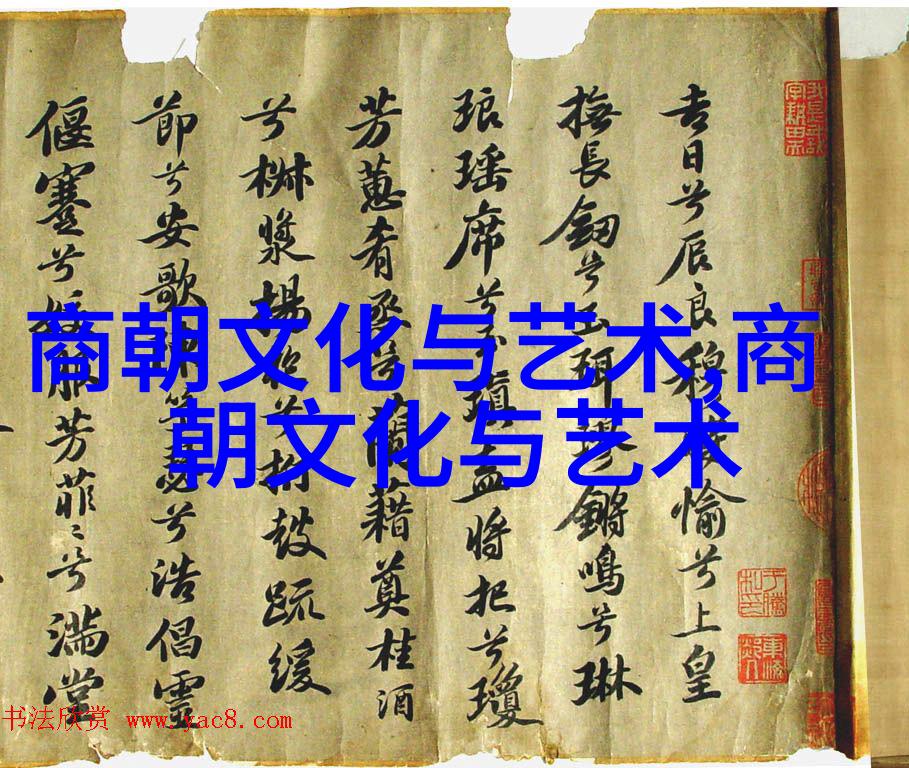 吉日兮辰良穆將愉兮上皇
撫長劒兮玉珥璆鏘鳴兮琳
琅瑶席兮玉瑱盍將把兮瓊
芳蕙肴烝兮蘭藉奠桂酒
兮椒漿揚枹兮拊鼓踈緩
節兮安歌陳竽瑟兮浩倡靈
偃蹇兮姣服芳菲〻兮滿堂
商朝文化与艺术,商
朝文化与艺术
书法欣赏 www.yac8.com